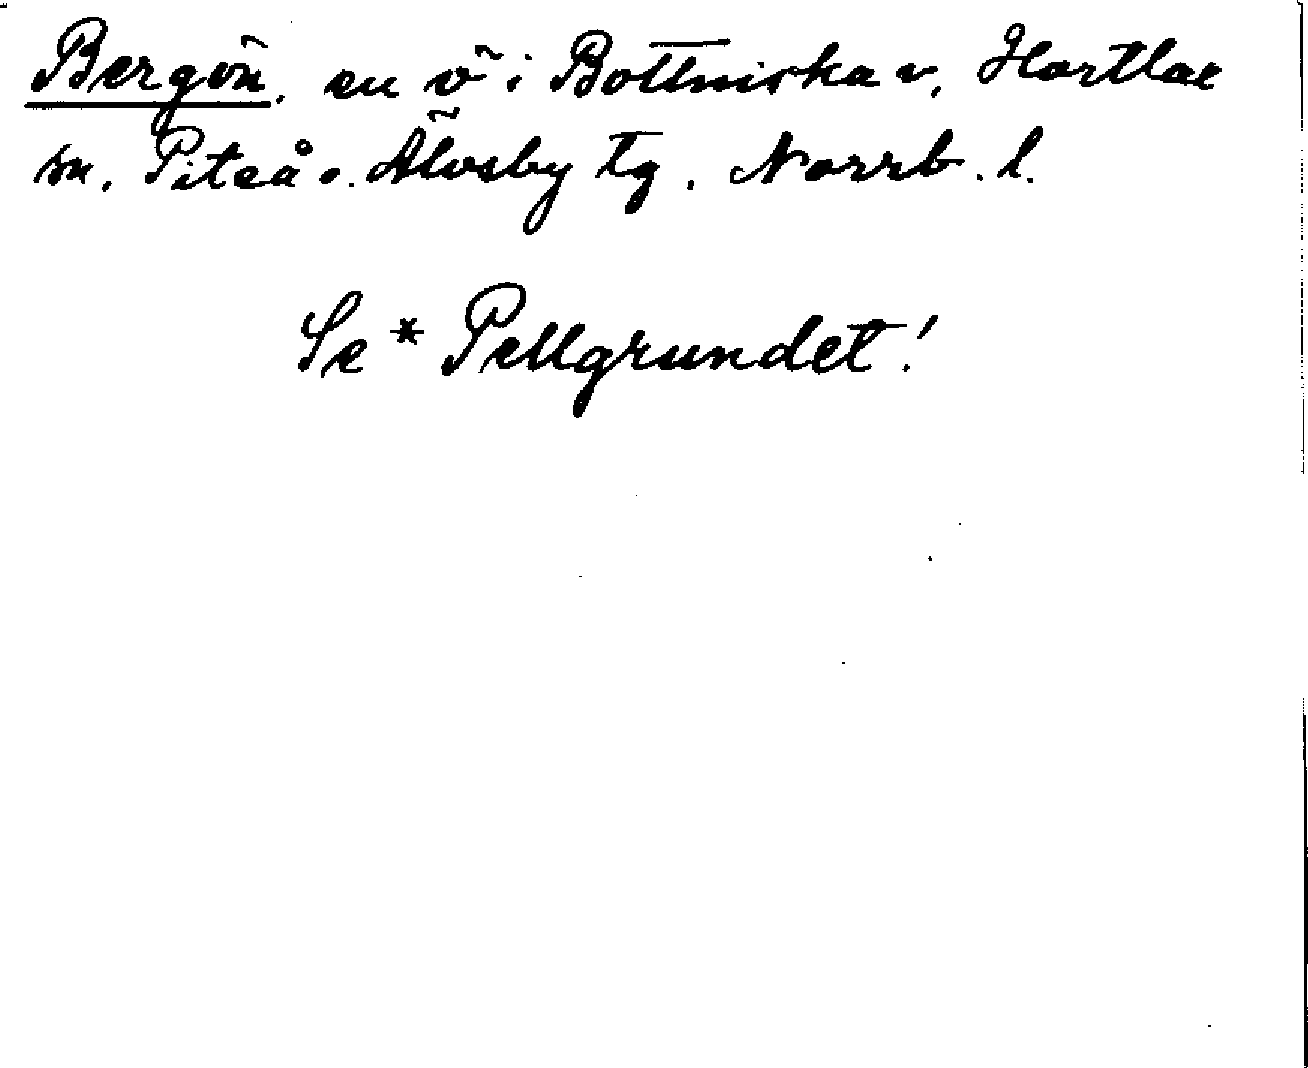 Bergön, en ö i Bottniska v, Hortlax
sn. Piteå o. Älvsby tg. Norrb. l.
Se * Pellgrundet!